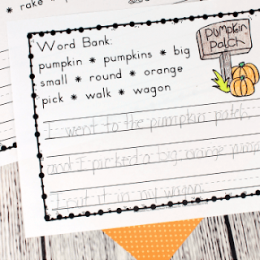 rake
Word Bank:
pumpkin * pumpkins * big
small * round * orange
pick * walk * wagon
Pumpkin
Patch
I went to the pumpkin patch
and I picked a big orange pump
I put it in my wagon.